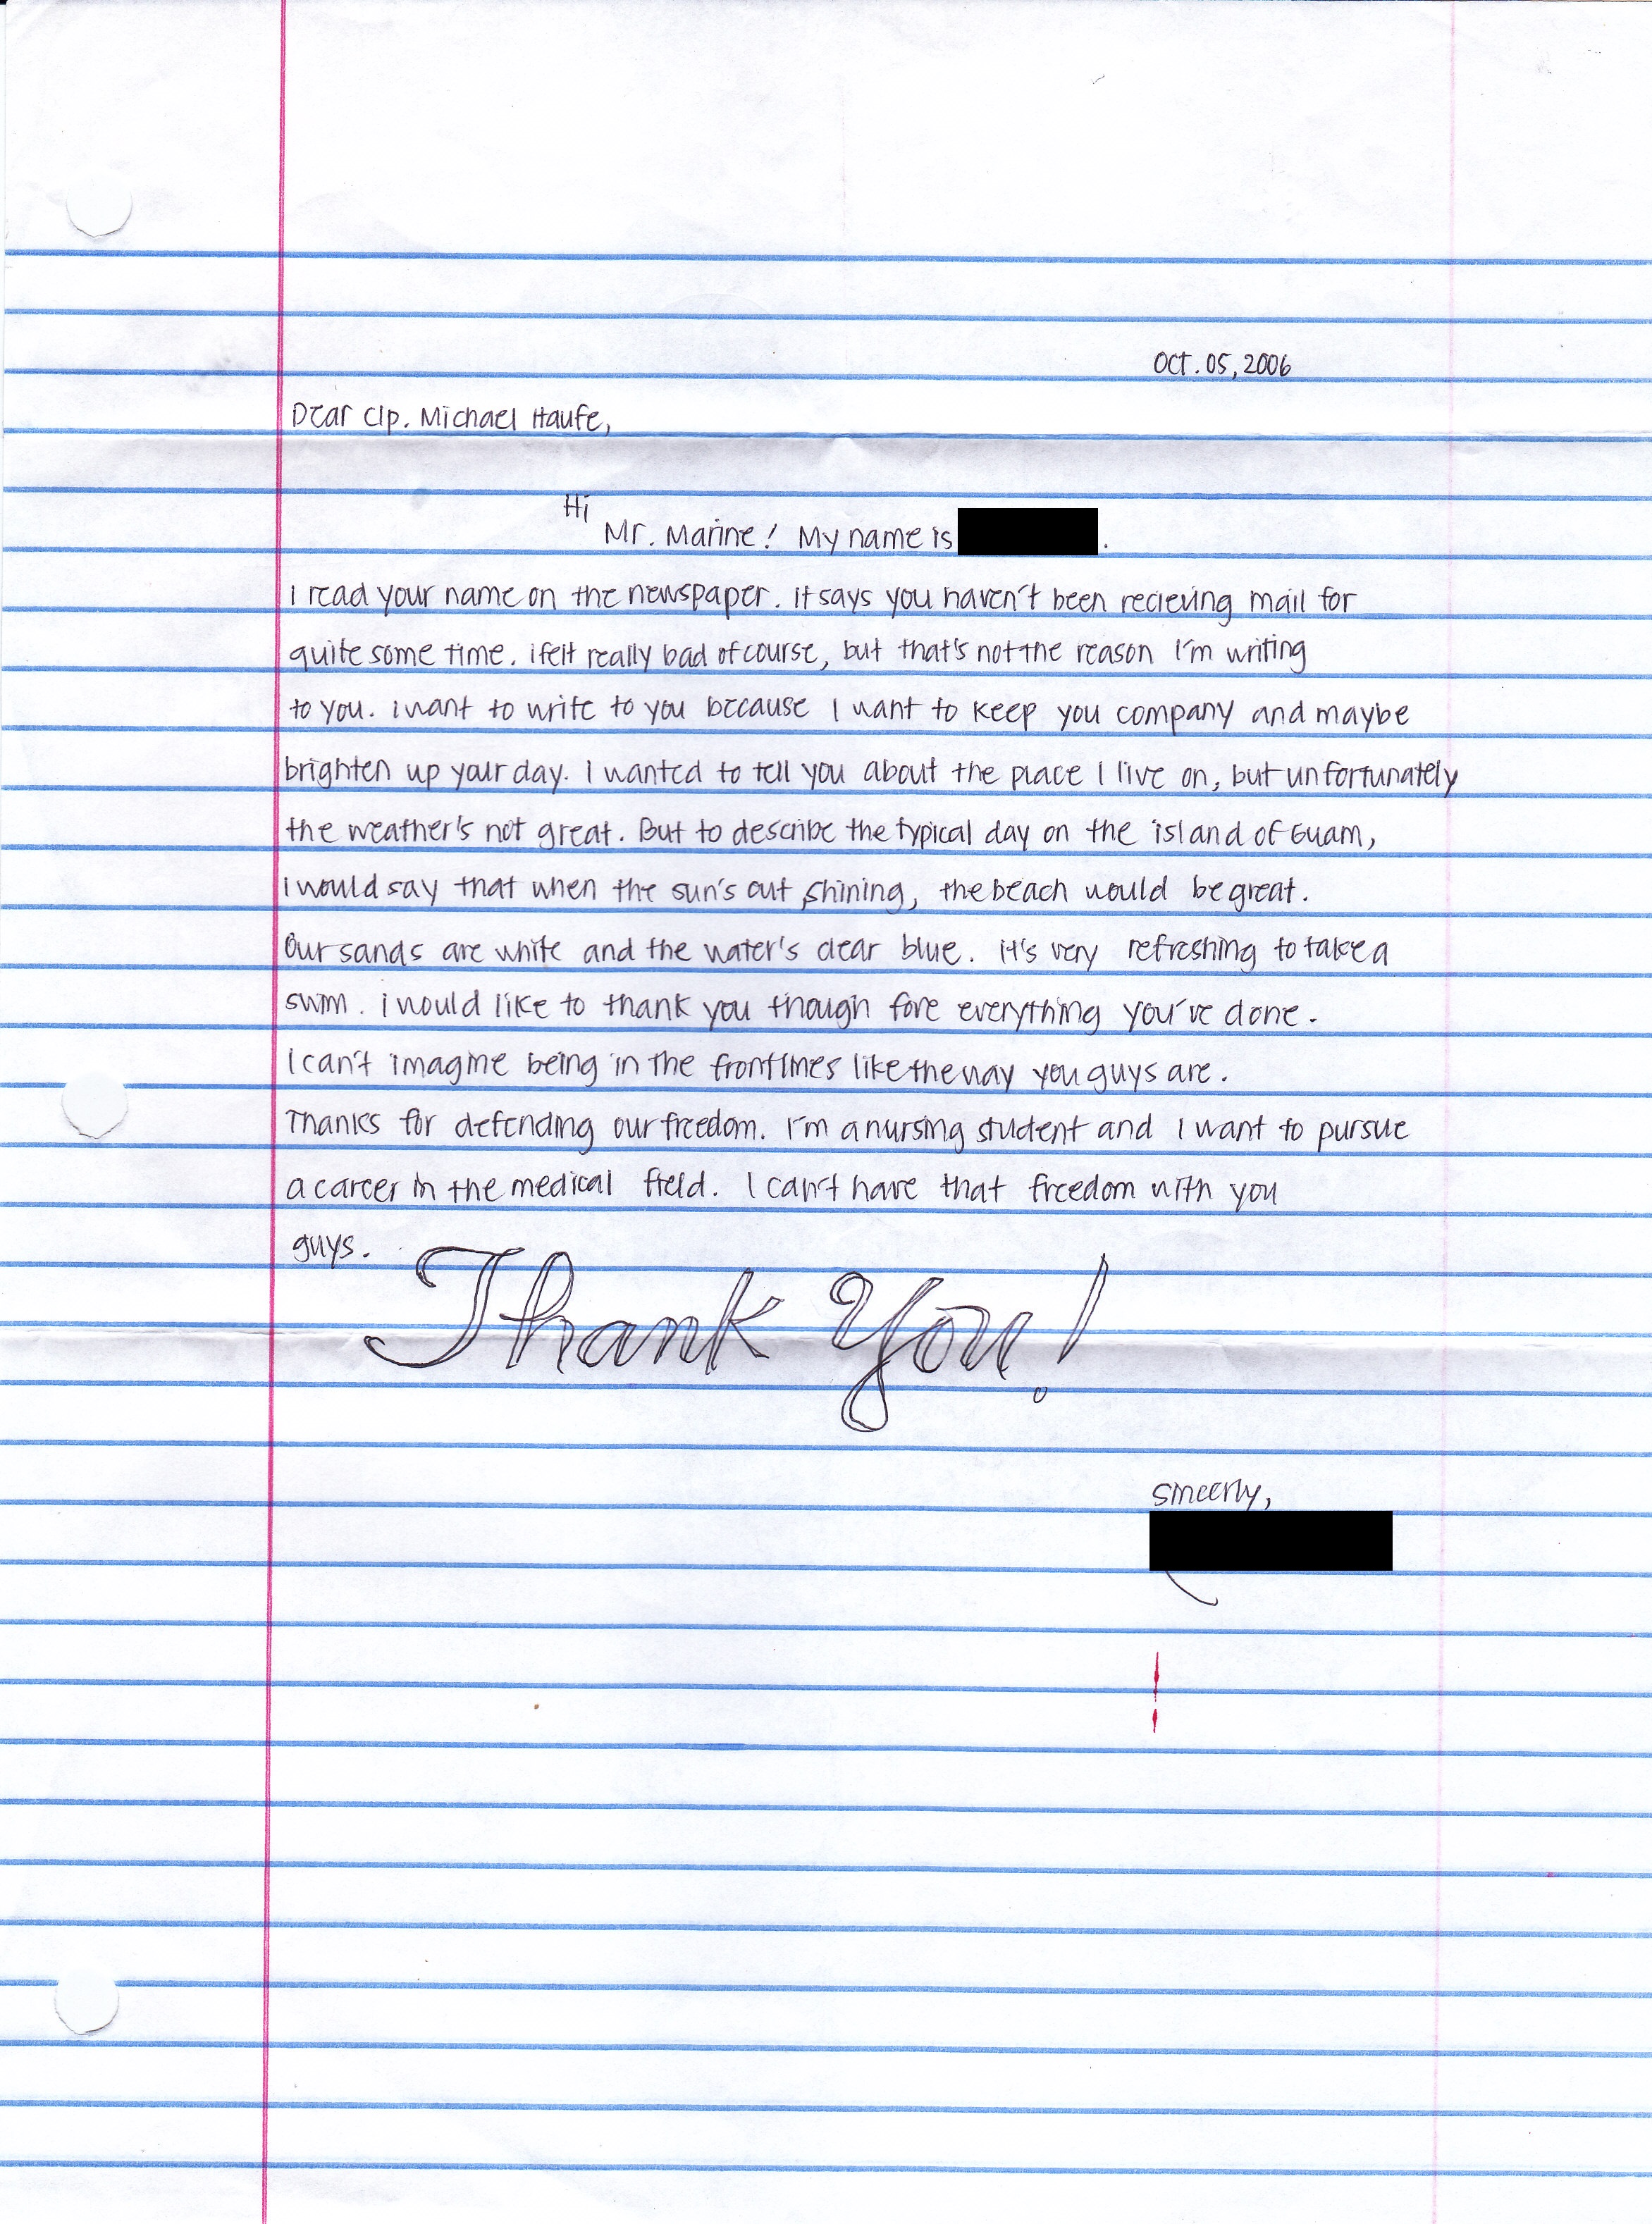 Oct. 05, 2006
Dear Clp. Michael Haufe,
Hi
Mr. Marine! My name is .
I read your name on the newspaper. It says you haven't been recieving mail for
quite some time. I felt really bad of course, but that's not the reason I'm writing
to you. I want to write to you because I want to keep you company and maybe
brighten up your day. I wanted to tell you about the place I live on, but unfortunately
the weather's not great. But to describe the typical day on the island of Guam,
I would say that when the sun's out shining, the beach would be great.
Our sands are white and the water's clear blue. It's very refreshing to take a
swim. I would like to thank you though fore everything you've done.
I can't imagine being in the frontlines like the way you guys are.
Thanks for defending our freedom. I'm a nursing student and I want to pursue
a career in the medical field. I can't have that freedom with you
guys.
Thank You!
Sincerly,